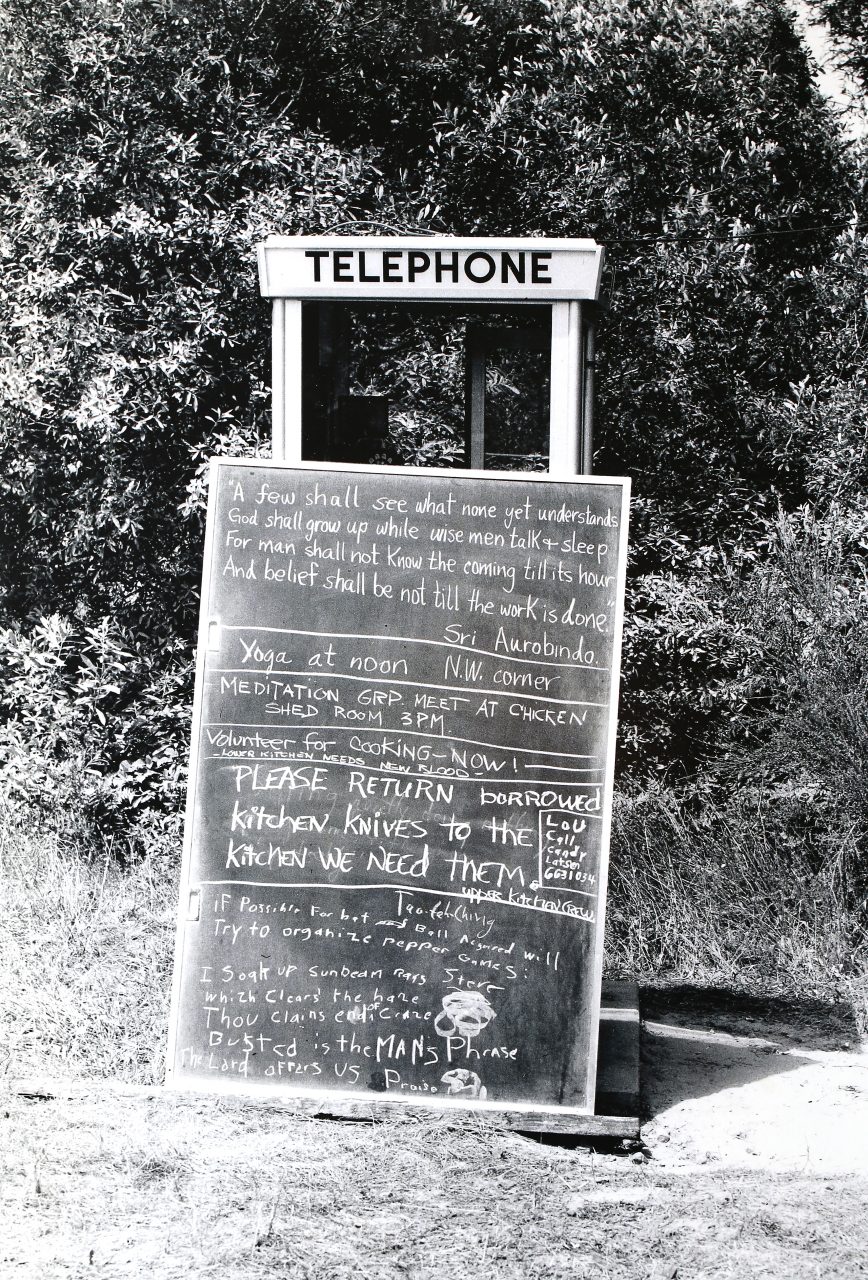 TELEPHONE
"A few shall see what none yet understands
God shall grow up while wise men talk & sleep
For man shall not Know the coming till its hour
And belief shall be not till the work is done."
Sri Aurobindo.
Yoga at noon N.W. corner
MEDITATION GRP. MEET AT CHICKEN
SHED ROOM 3 PM.
Volunteer for COOKING-NOW!
-LOWER KITCHEN NEEDS NEW BLOOD-
PLEASE RETURN borrowed
Kitchen knives to the
Kitchen WE NEED them.
LOU
Call
Candy
Latson
6631034
UPPER KITCHEN CREW
Tao-teh-Ching
iF Possible For bat and Ball Acquired will
Try to organize pepper GAMES:
Steve
I Soak up sunbeam Rays
which Clears the haze
Thou claims end of Craze
Busted is the MANs Phrase
The Lord offers us Praise